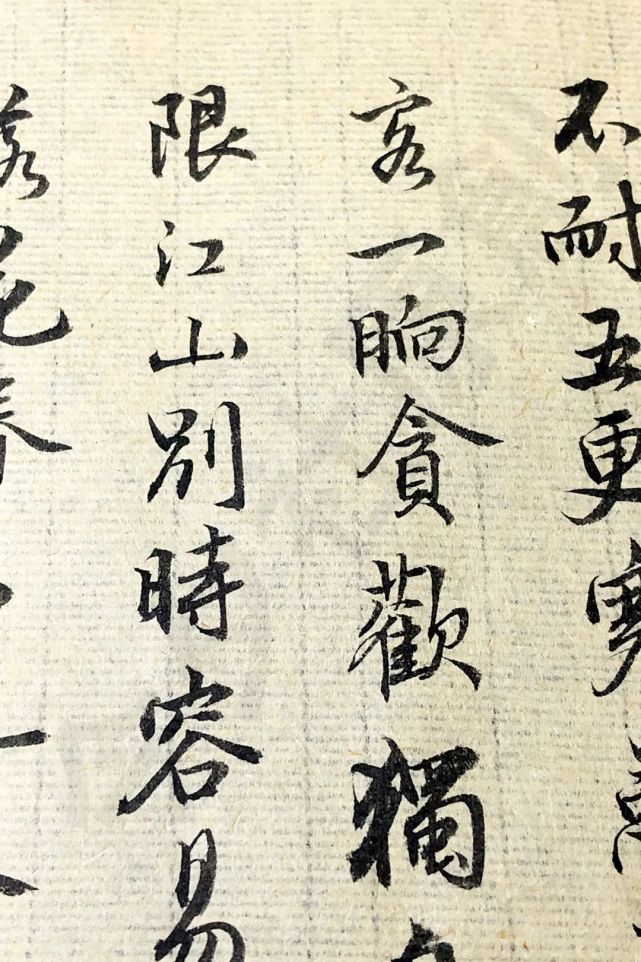 不耐五更寒
客一晌貪歡獨
限江山別時容易
花春